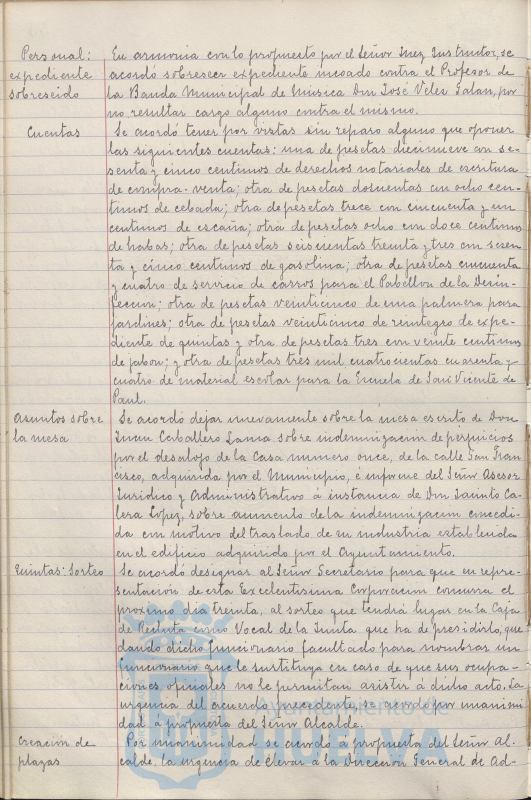 Personal:
expediente
sobreseido
En armonia con lo propuesto por el Señor Juez Instructor, se
acordó sobreseer expediente incoado contra el Profesor de
la Banda Municipal de Música Don José Veles Galan, por
no resultar cargo alguno contra el mismo.
Cuentas
Se acordó tener por vistas sin reparo alguno que oponer
las siguientes cuentas: una de pesetas diecinueve con se-
senta y cinco centimos de derechos notariales de escritura
de compra-venta; otra de pesetas doscuentas con ocho cen-
timos de cebada; otra de pesetas trece con cincuenta y un
centimos de escaña; otra de pesetas ocho con doce centimos
de habas; otra de pesetas seiscientas treinta y tres con sesen
ta y cinco centimos de gasolina; otra de pesetas cincuenta
y cuatro de servicio de carros para el Pabellon de la Desin-
feccion; otra de pesetas veinticinco de una palmera para
jardines; otra de pesetas veinticinco de reintegro de expe-
diente de quintas y otra de pesetas tres con veinte centimos
de jabon; y otra de pesetas tres mil cuatrocientas cuarenta y
cuatro de material escolar para la Escuela de San Vicente de
Paul.
Asuntos sobre
la mesa
Se acordó dejar nuevamente sobre la mesa escrito de Don
Juan Caballero Lama sobre indemnizacion de perjuicios
por el desalojo de la Casa numero once, de la calle San Fran
cisco, adquirida por el Municipio, é informe del Señor Asesor
Juridico y Administrativo á instancia de Don Jacinto Ca-
lera Lopez, sobre aumento de la indemnizacion concedi-
da con motivo del traslado de su industria establecida
en el edificio adquirido por el Ayuntamiento.
Quintas: Sorteo
Se acordó designar al Señor Secretario para que en repre-
sentacion de esta Excelentisima Corporacion concurra el
proximo dia treinta, al sorteo que tendrá lugar en la Caja
de Recluta como Vocal de la Junta que ha de presidirlo, que
dando dicho funcionario facultado para nombrar un
funcionario que le sustituya en caso de que sus ocupa-
ciones oficiales no le permitan asistir á dicho acto. La
urgencia del acuerdo precedente, se acordó por unanimi
dad á propuesta del Señor Alcalde.
Creacion de
plazas
Por unanimidad se acordó á propuesta del Señor Al-
calde, la urgencia de elevar á la Direccion General de Ad-
Ayuntamiento de
HUELVA